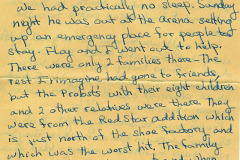 We had practically no sleep. Sunday
night he was out at the arena setting
up an emergency place for people to
stay. Flay and I went out to help.
There were only 2 families there - The
rest I imagine, had gone to friends,
but the Probsts with their eight children
and 2 other relatives were there They
were from the Red Star addition which
is just north of the shoe factory and
which was the worst hit. The family